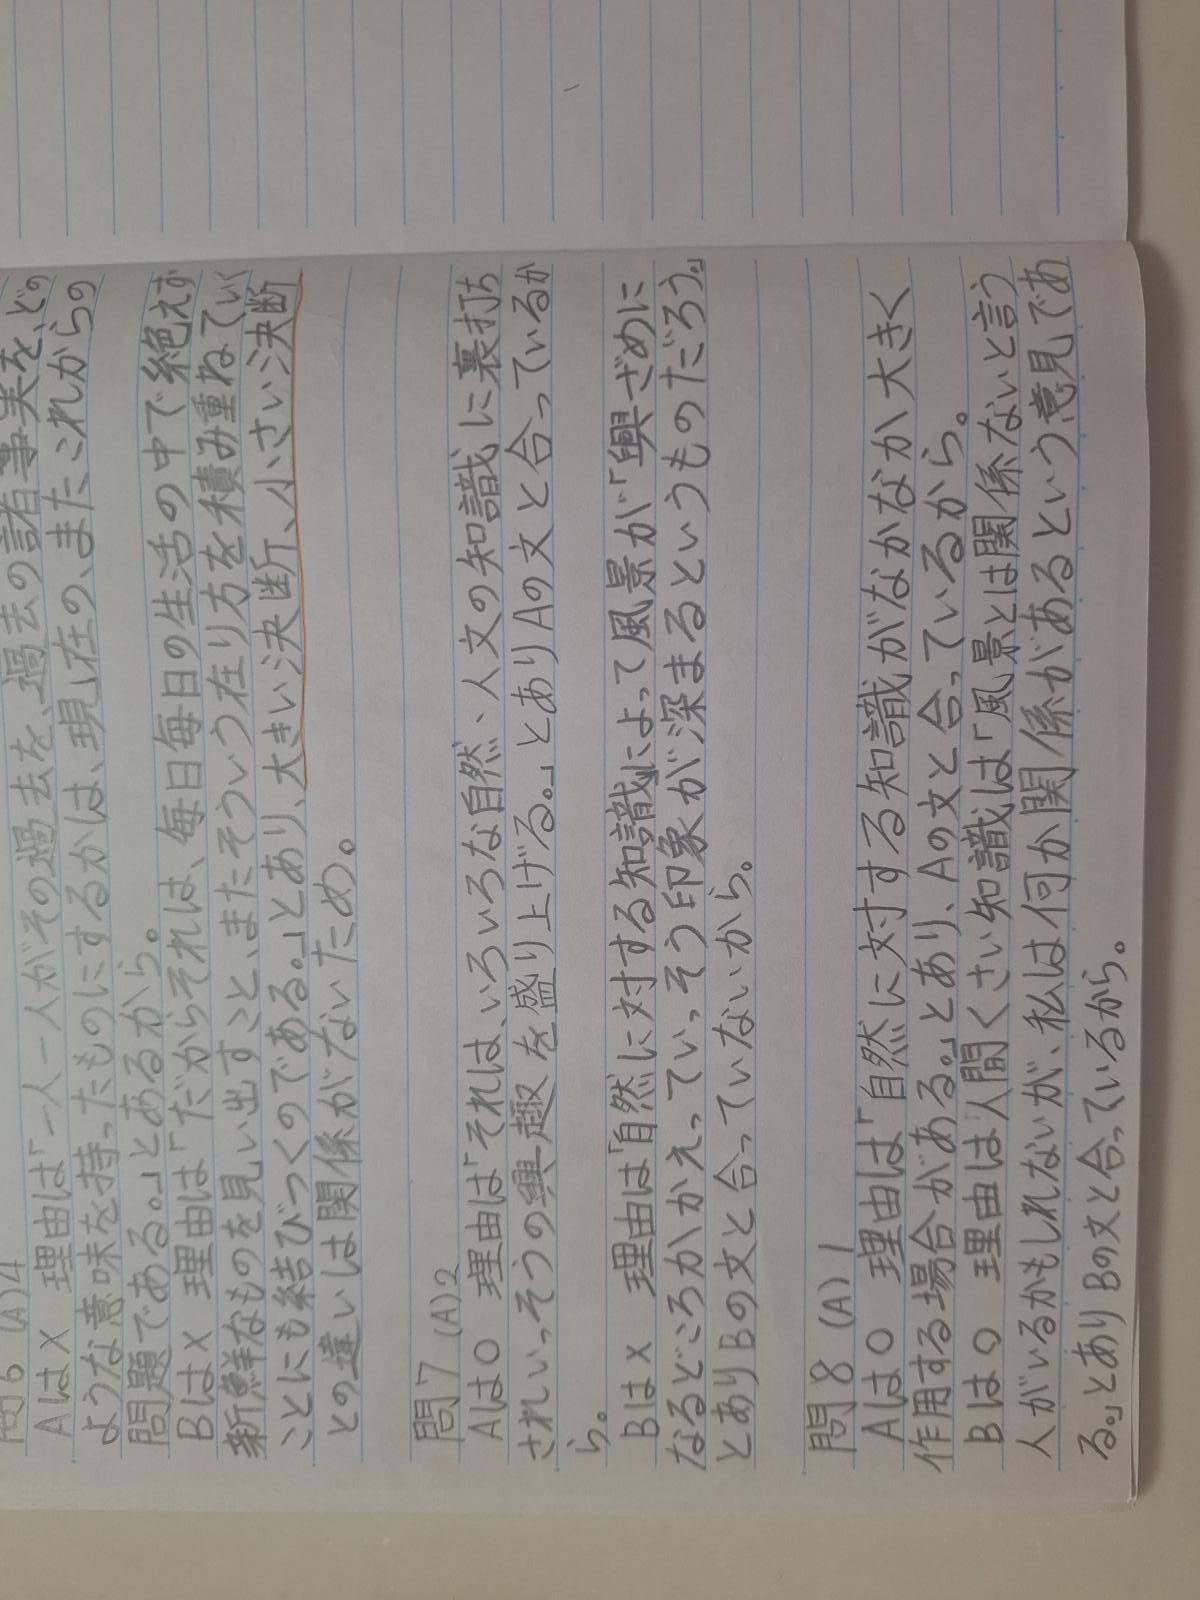 問6 (A)4
Aは× 理由は「一人一人がその過去を、過去の諸事実を、どの
ような意味を持ったものにするかは、現在の、またこれからの
問題である。」とあるから。
Bは× 理由は「だからそれは、毎日毎日の生活の中で絶えず
新鮮なものを見い出すこと、またそういう在り方を積み重ねていく
ことにも結びつくのである。」とあり、大きい決断、小さい決断
との違いは関係がないため。
問7 (A)2
Aは○ 理由は「それは、いろいろな自然、人文の知識に裏打ち
されいっそうの興趣を盛り上げる。」とありAの文と合っているか
ら。
Bは× 理由は「自然に対する知識によって風景が「興ざめに
なるどころかかえっていっそう印象が深まるというものだろう。」
とありBの文と合っていないから。
問8 (A)1
Aは○ 理由は「自然に対する知識がなかなか大きく
作用する場合がある。」とあり、Aの文と合っているから。
Bは○ 理由は人間くさい知識は「風景とは関係ないと言う
人がいるかもしれないが、私は何か関係があるという意見であ
る。」とありBの文と合っているから。